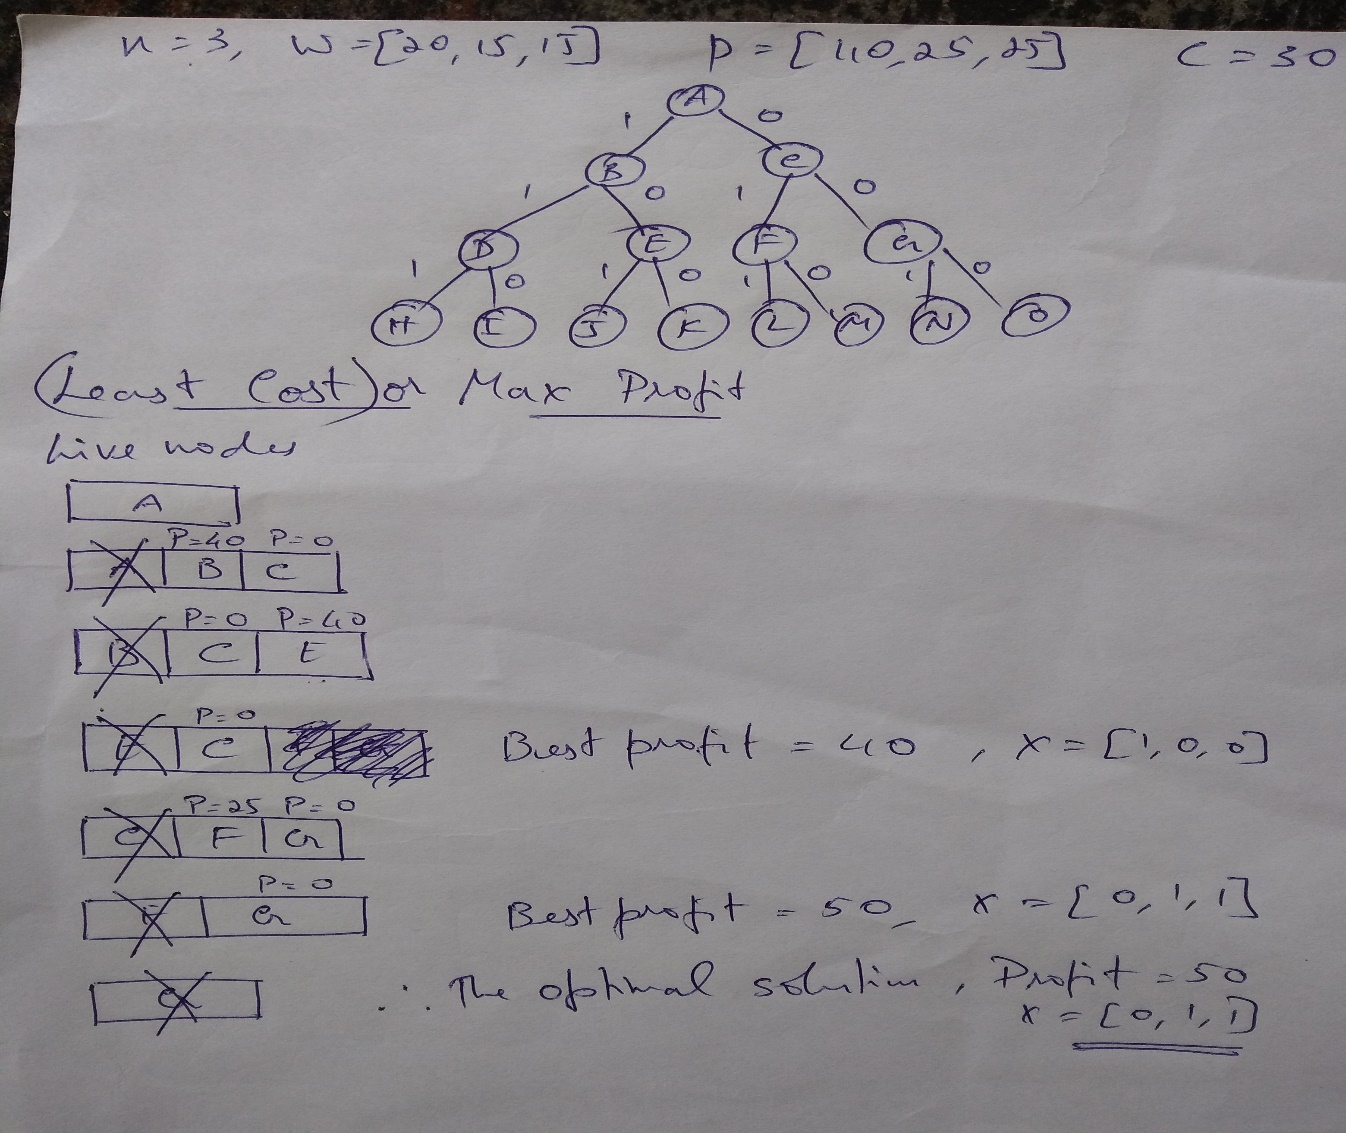 n = 3, W = [20, 15, 15] P = [40, 25, 25] C = 30
A
1 0
B C
1 0 1 0
D E F G
1 0 1 0 1 0 1 0
H I J K L M N O
(Least Cost) or Max Profit
Live nodes
A
P=40 P=0
A B C
P=0 P=40
B C E
P=0
E C Best profit = 40 , X = [1, 0, 0]
P=25 P=0
C F G
P=0
F G Best profit = 50, X = [0, 1, 1]
G ∴ The optimal solution, Profit = 50
X = [0, 1, 1]